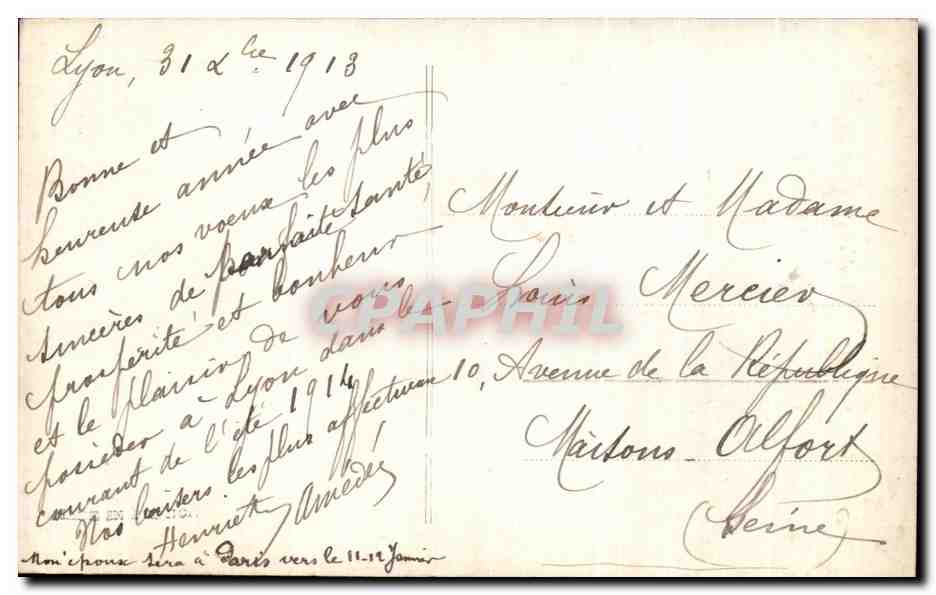 Lyon, 31 Xbre 1913
Bonne et
heureuse année avec
tous nos voeux les plus
sincères de parfaite santé,
prospérité et bonheur
et le plaisir de vous
posséder à Lyon dans le
courant de l'été 1914
Nos baisers les plus affectueux
Henriette Amédée
Mon époux sera à Paris vers le 11-12 Janvier
Monsieur et Madame
Louis Mercier
10, Avenue de la République
Maisons-Alfort
(Seine)
CPAPHIL